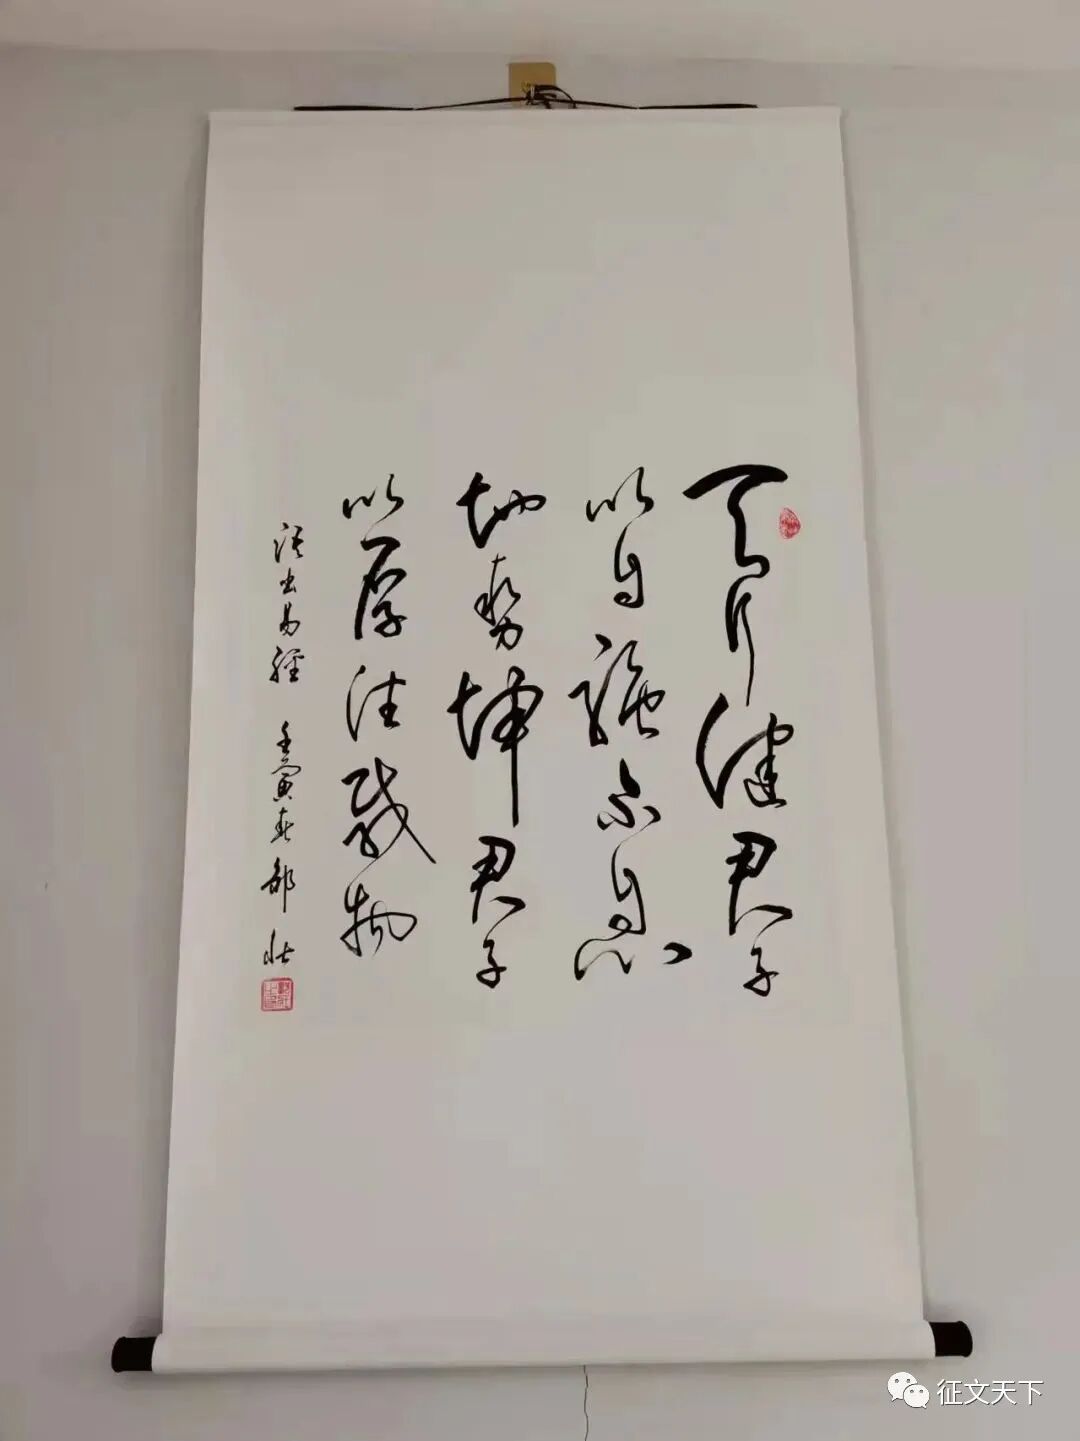 天行健君子
以自强不息
地势坤君子
以厚德载物
语出易经 壬寅春 邵壮
征文天下